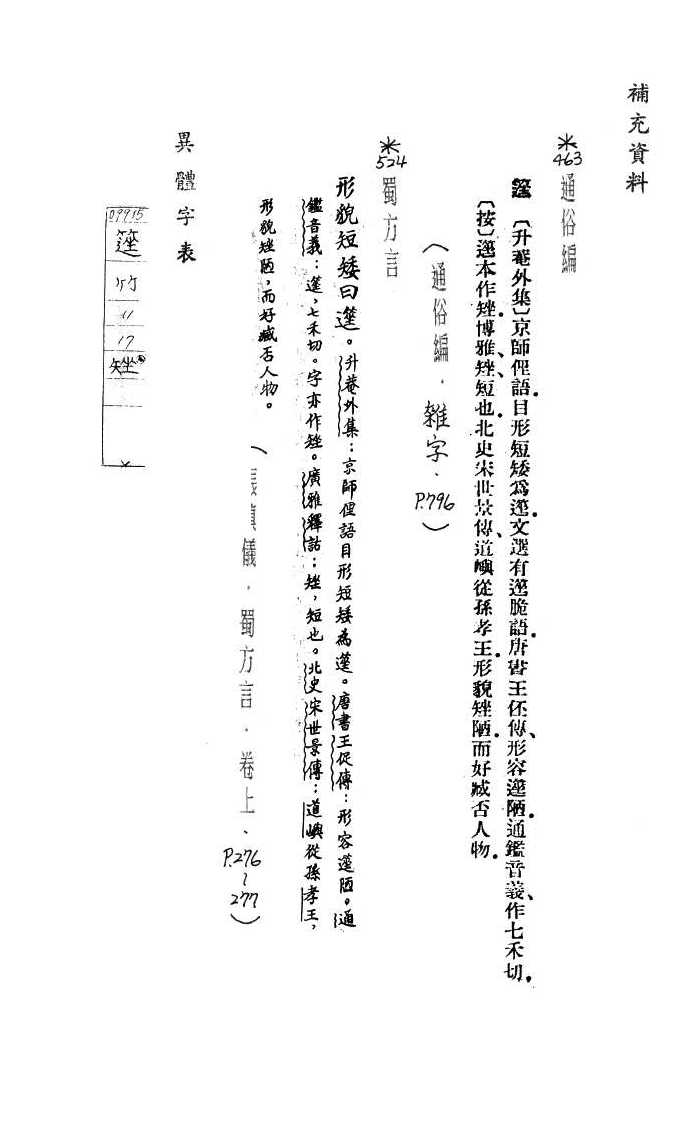 補充資料
*463 通俗編
〔升菴外集〕京師俚語目形短矮爲文選有脆語唐書王伾傳形容陋通鑑音義作七禾切
〔按〕本作矬博雅矬短也北史宋世景傳道嶼從孫孝王形貌矬陋而好臧否人物
(通俗編.雜字、P.796)
*524 蜀方言
形貌短矮曰。升菴外集：京師俚語目形短矮為。唐書王伾傳：形容陋。通
鑑音義：，七禾切。字亦作矬。廣雅釋詁：矬，短也。北史宋世景傳：道嶼從孫孝王，
形貌矬陋，而好臧否人物。
(張慎儀.蜀方言.卷上、P.276~277)
異體字表
09915
竹
11
17
矬